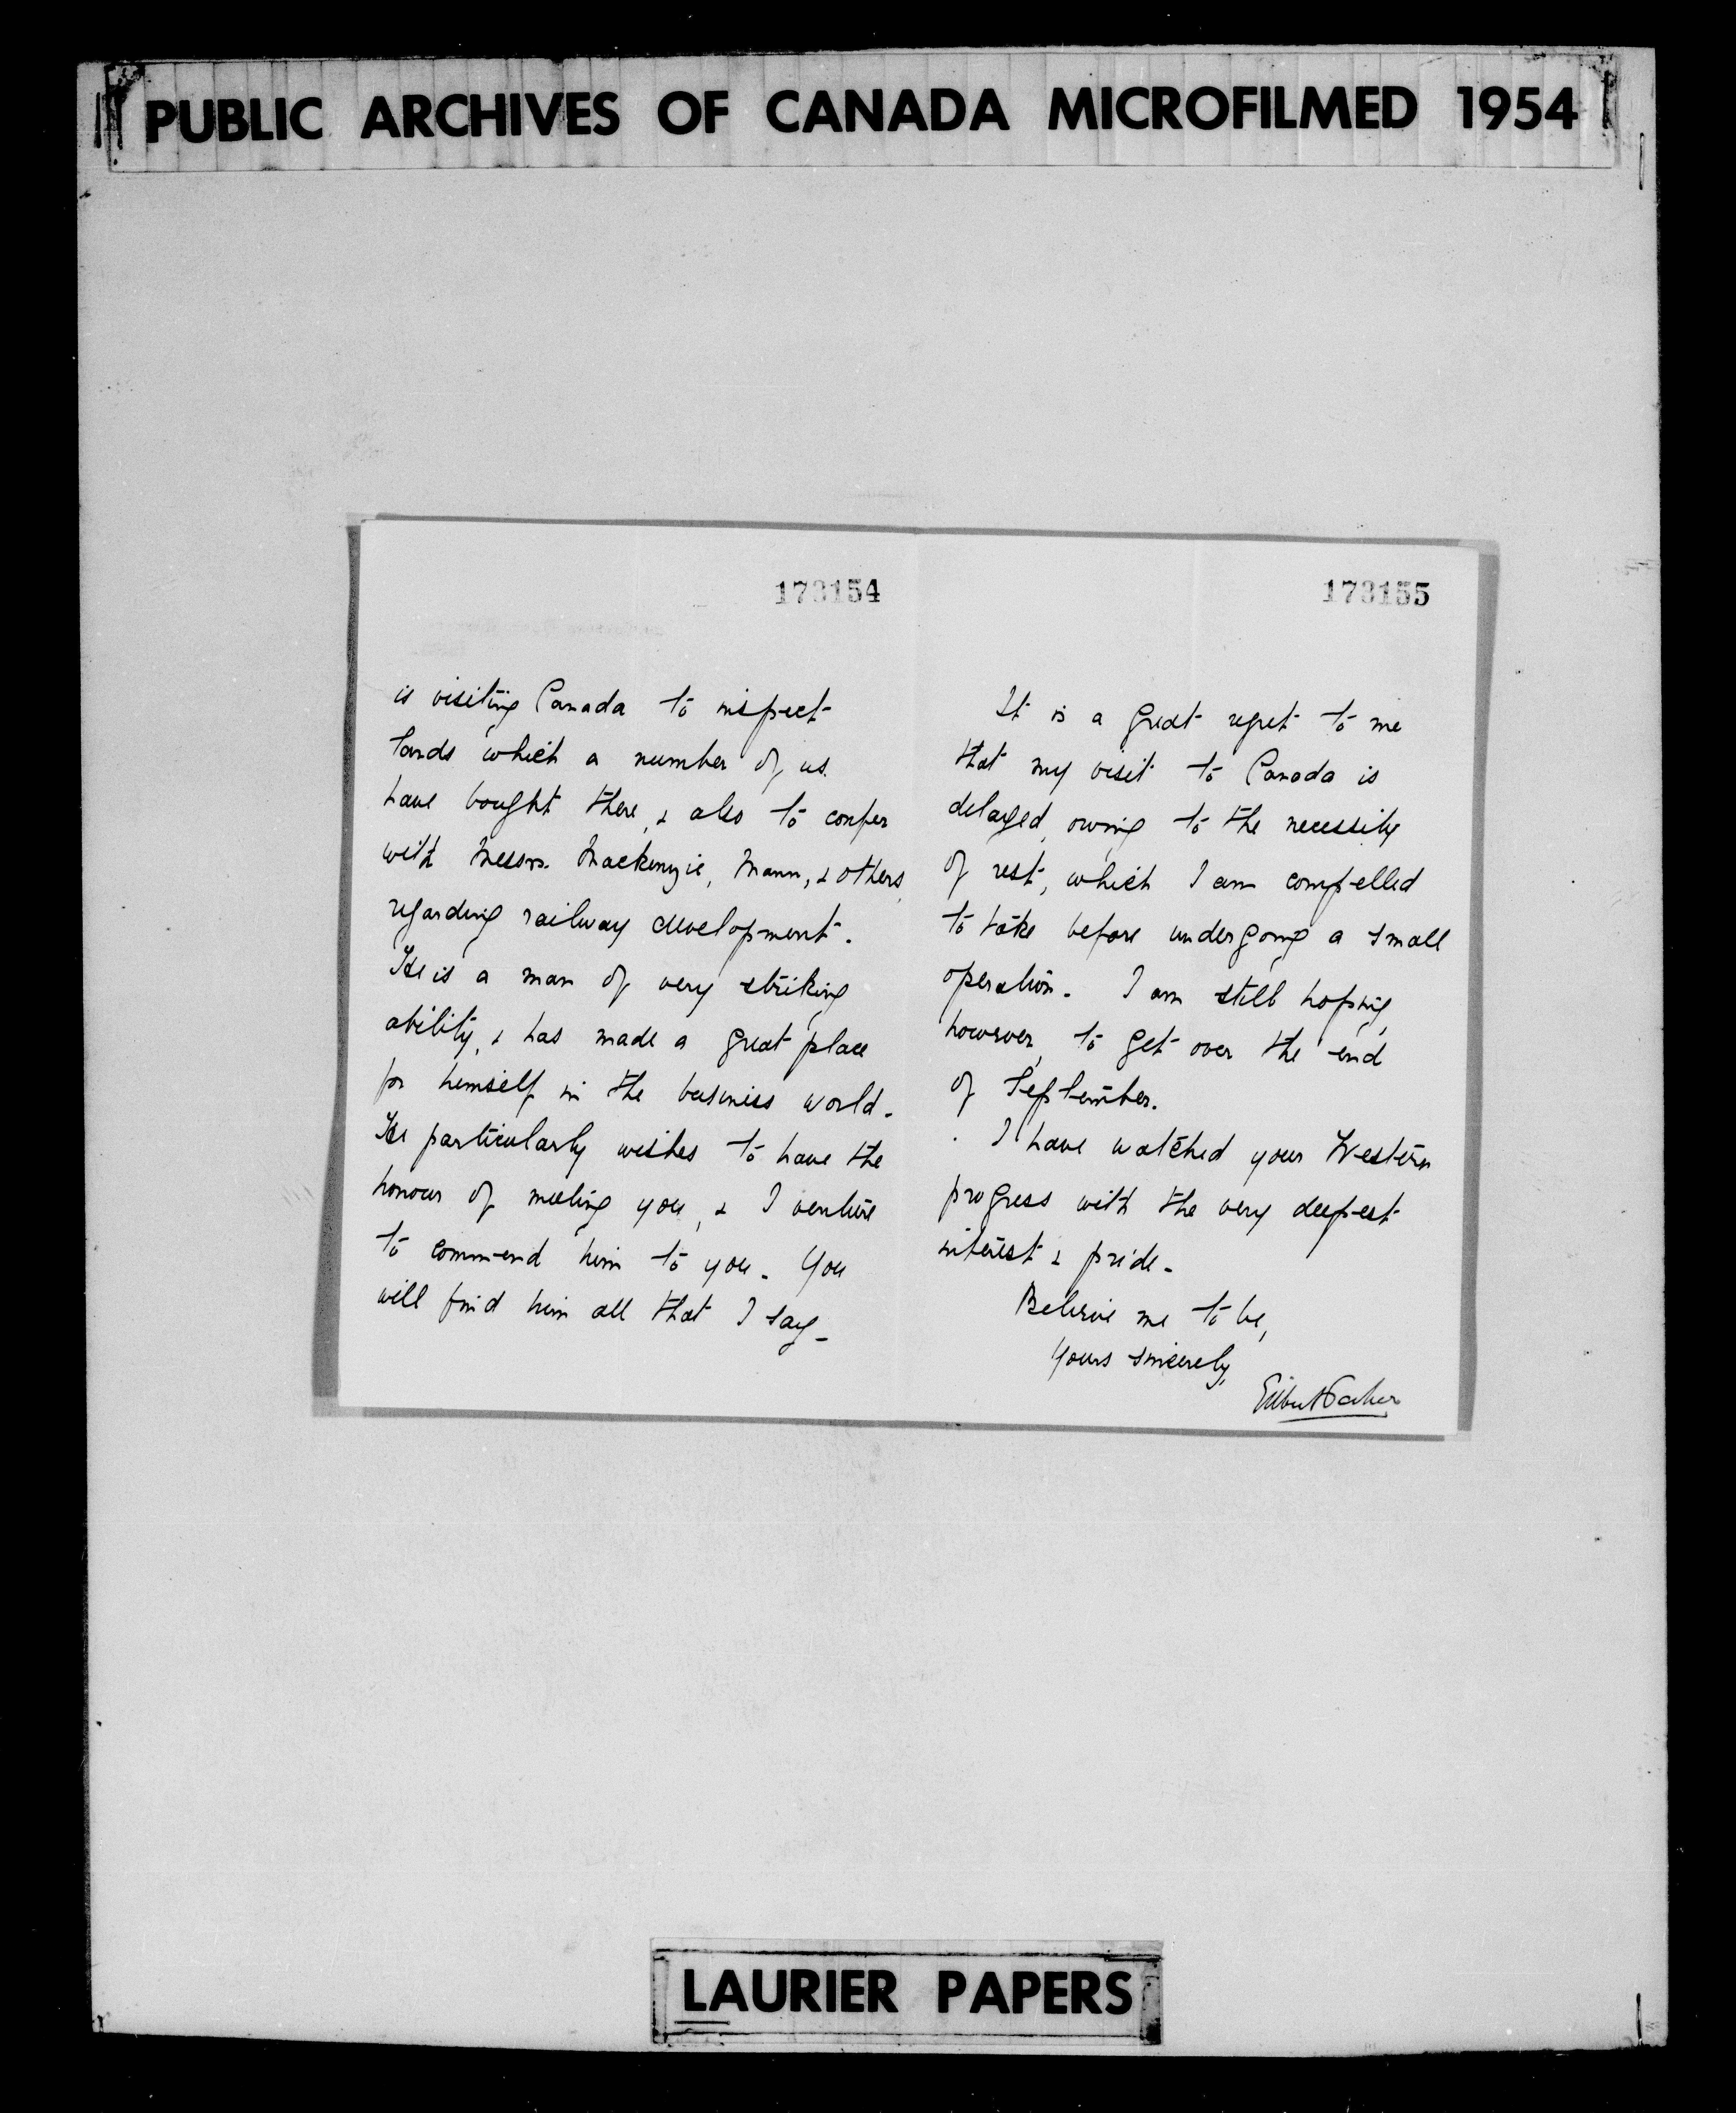 PUBLIC ARCHIVES OF CANADA MICROFILMED 1954
173154
is visiting Canada to inspect
lands which a number of us
have bought there, & also to confer
with Messrs. Mackenzie, Mann, & others,
regarding railway development.
He is a man of very striking
ability, & has made a great place
for himself in the business world.
He particularly wishes to have the
honour of meeting you, & I venture
to commend him to you. You
will find him all that I say.
173155
It is a great regret to me
that my visit to Canada is
delayed, owing to the necessity
of rest, which I am compelled
to take before undergoing a small
operation. I am still hoping,
however, to get over the end
of September.
I have watched your Western
progress with the very deepest
interest & pride.
Believe me to be,
Yours sincerely,
Gilbert Parker
LAURIER PAPERS